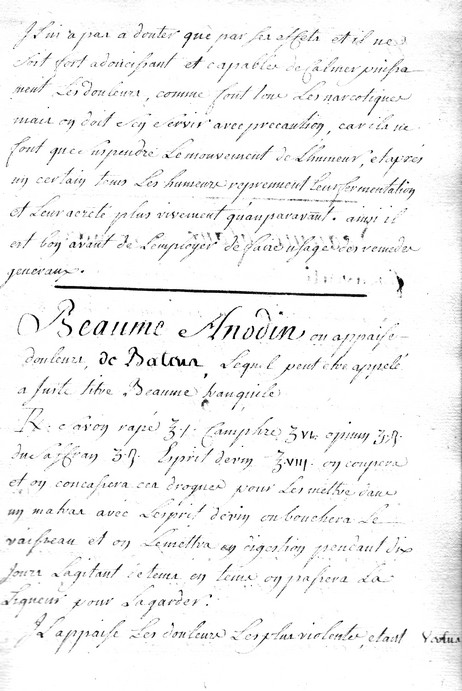 Il n'i a pas a douter que par ses effets et il ne
soit fort adoucissant et capable de calmer puissa
ment Les douleurs, comme font tous Les narcotiques
mais on doit s'en servir avec precaution, car ils ne
font que suspendre Le mouvement de L'humeur, et aprés
un certain tems Les humeurs reprennent Leur fermentation
et Leur acreté plus vivement qu'auparavant. ainsi il
est bon avant de L'employer de faire usage des remedes
generaux.
Beaume Anodin, ou appaise-
douleurs, de Bateus, Lequel peut etre appelé
a juste titre Beaume tranquile
R: savon rapé ʒ.j. Camphre ʒvi. opium
du saffran Esprit de vin ʒ.viii. on coupera
et on concassera ces drogues pour Les mettre dans
un matras avec L'esprit de vin on bouchera Le
vaisseau et on Le mettra en digestion pendant dix
jours L'agitant de tems en tems on passera La
Liqueur pour La garder.
Il appaise Les douleurs Les plus violentes, etant Vertus